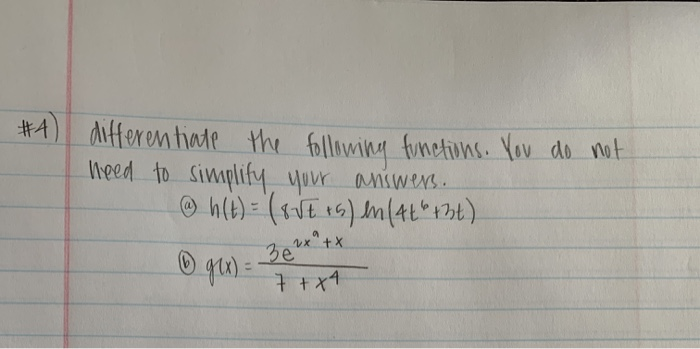 #4) differentiate the following functions. You do not
need to simplify your answers.
ⓐ h(t) = (8√t +5) ln(4t⁶+3t)
ⓑ g(x) = 3e^(2x⁹+x) / 7 + x⁴